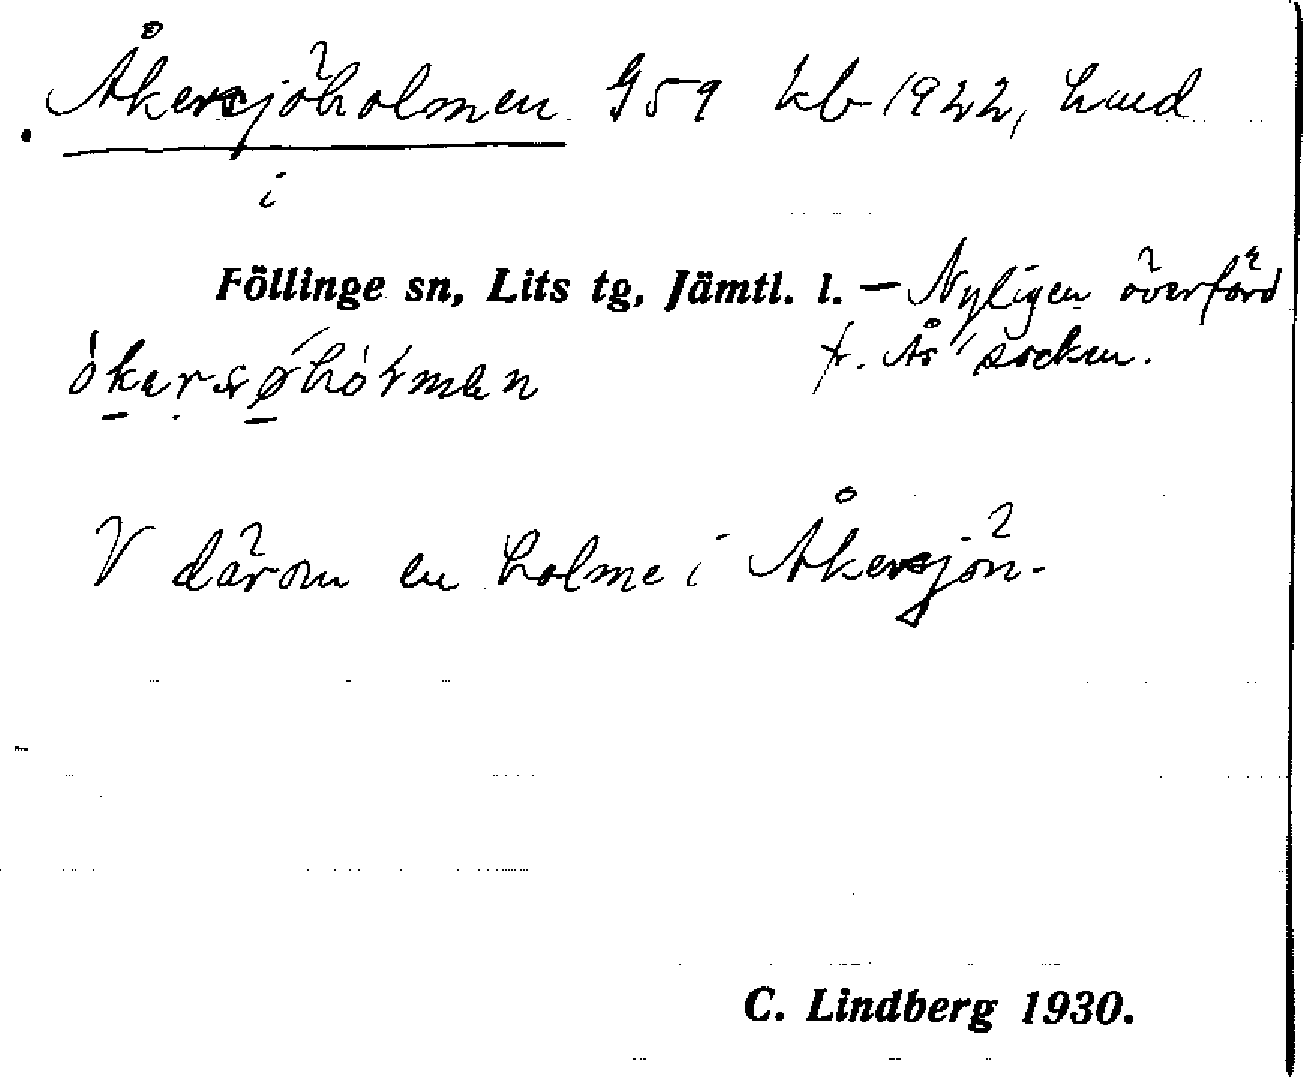 Åkersjöholmen G59 kb 1922, hmd
i
Föllinge sn, Lits tg, Jämtl. l. – Nyligen överförd
fr. Ås socken.
V därom en holme i Åkersjön.
C. Lindberg 1930.